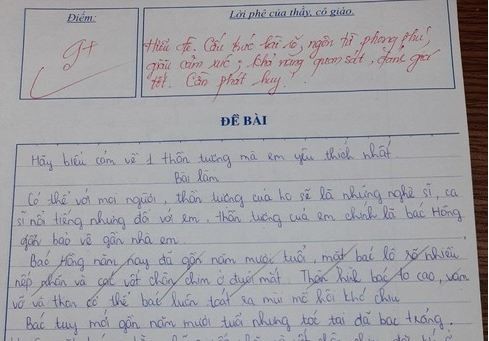 Điểm:
Lời phê của thầy, cô giáo.
9+
Hiểu đề. Cấu trúc bài rõ, ngôn từ phong phú,
giàu cảm xúc; khả năng quan sát, đánh giá
tốt. Cần phát huy!
ĐỀ BÀI
Hãy biểu cảm về 1 thần tượng mà em yêu thích nhất.
Bài làm
Có thể với mọi người, thần tượng của họ sẽ là những nghệ sĩ, ca
sĩ nổi tiếng nhưng đối với em, thần tượng của em chính là bác Hồng
bảo vệ gần nhà em.
Bác Hồng năm nay đã gần năm mươi tuổi, mặt bác lộ rõ nhiều
nếp nhăn và các vết chân chim ở đuôi mắt. Thân hình bác to cao, vạm
vỡ và trên cơ thể bác luôn toát ra mùi mồ hôi khó chịu.
Bác tuy mới gần năm mươi tuổi nhưng tóc tai đã bạc trắng.